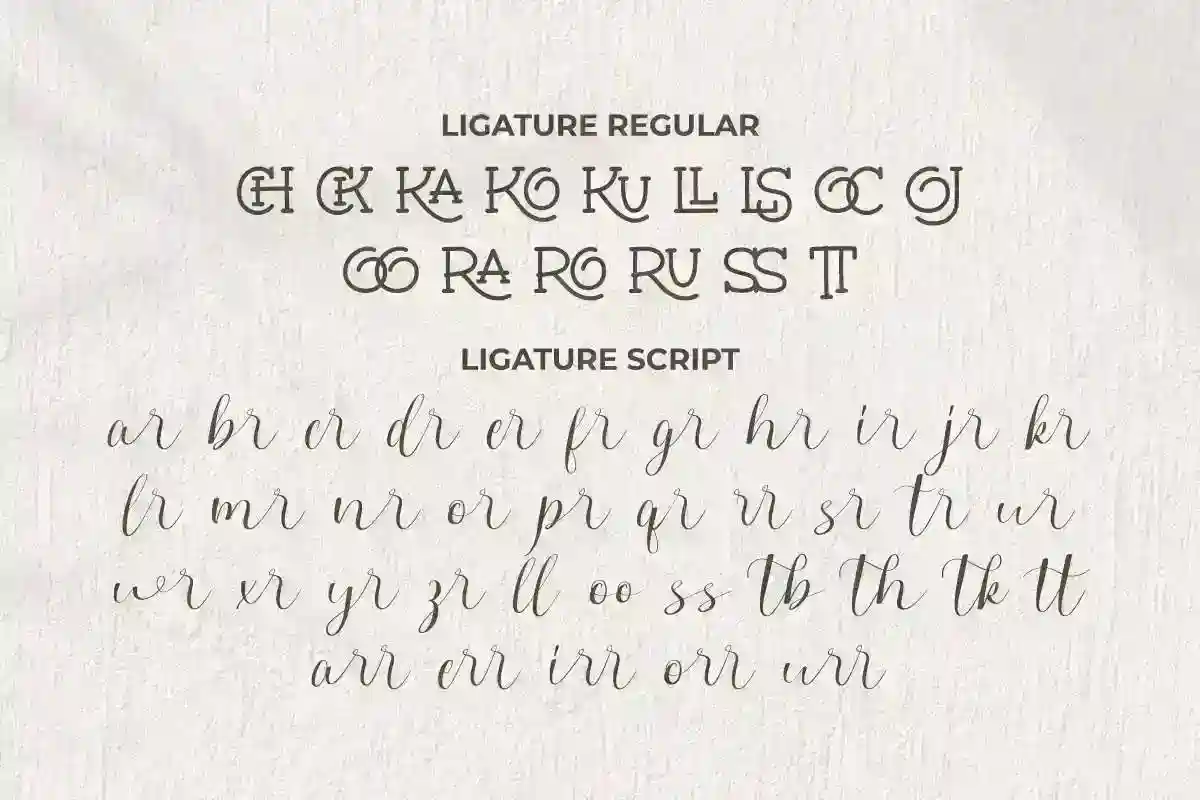 LIGATURE REGULAR
CH CK KA KO KU LL LS OC OJ
OO RA RO RU SS TT
LIGATURE SCRIPT
ar br cr dr er fr gr hr ir jr kr
lr mr nr or pr qr rr sr tr ur
wr xr yr zr ll oo ss tb th tk tt
arr err irr orr urr